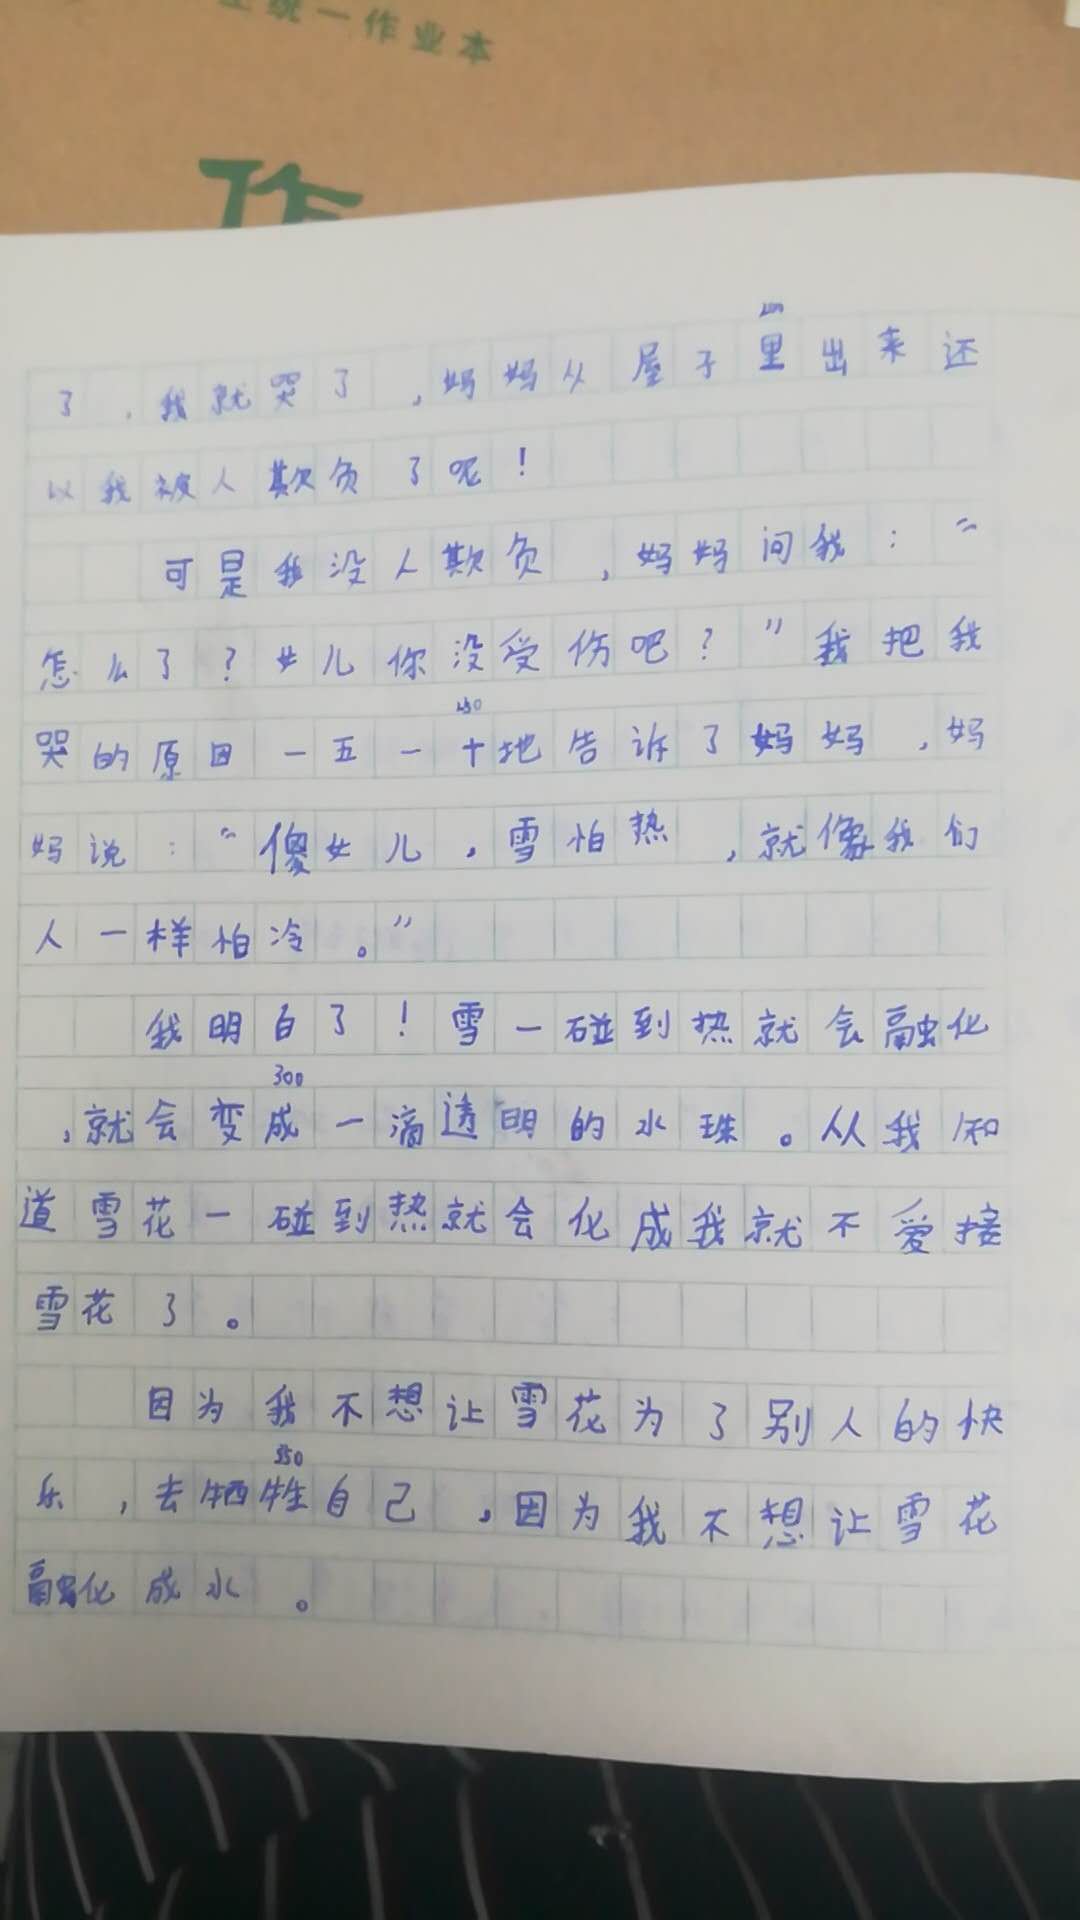 统一作业本
作
200
了，我就哭了，妈妈从屋子里出来还
以我被人欺负了呢！
可是我没人欺负，妈妈问我：“
怎么了？女儿你没受伤吧？”我把我
250
哭的原因一五一十地告诉了妈妈，妈
妈说：“傻女儿，雪怕热，就像我们
人一样怕冷。”
我明白了！雪一碰到热就会融化
300
，就会变成一滴透明的水珠。从我知
道雪花一碰到热就会化成我就不爱接
雪花了。
因为我不想让雪花为了别人的快
350
乐，去牺牲自己，因为我不想让雪花
融化成水。